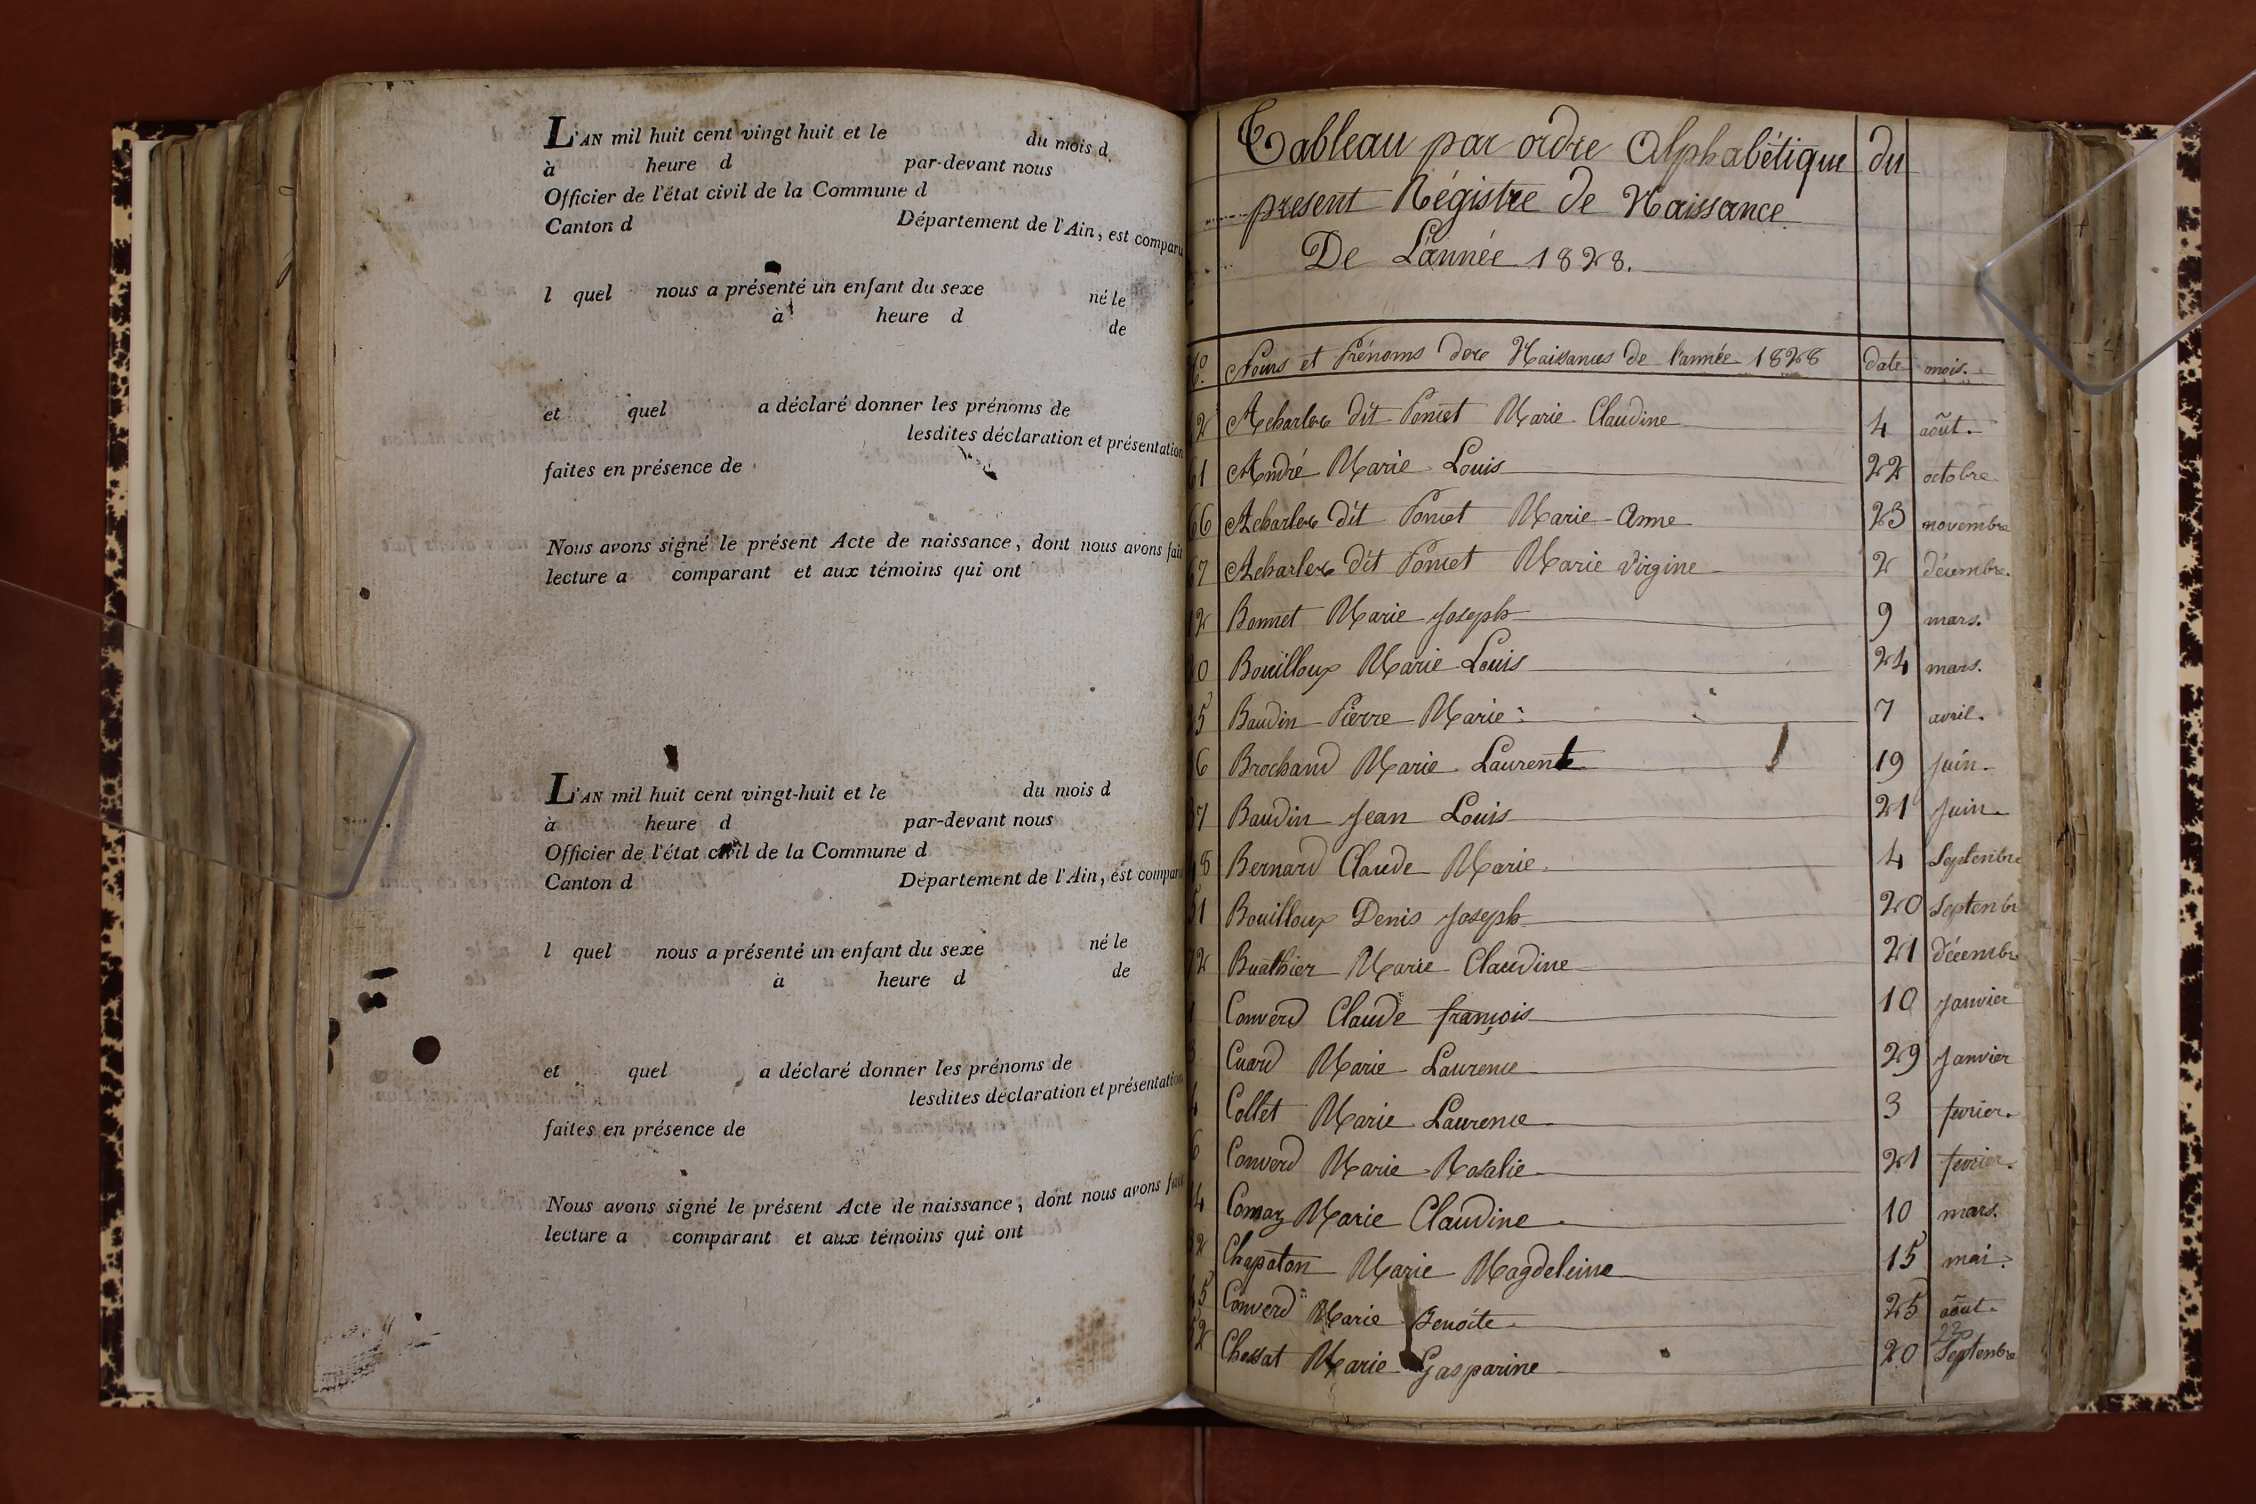 L'AN mil huit cent vingt huit et le du mois d
à heure d par-devant nous
Officier de l'état civil de la Commune d
Canton d Département de l'Ain, est comparu
l quel nous a présenté un enfant du sexe né le
à heure d de
et quel a déclaré donner les prénoms de
lesdites déclaration et présentation
faites en présence de
Nous avons signé le présent Acte de naissance, dont nous avons fait
lecture a comparant et aux témoins qui ont
L'AN mil huit cent vingt-huit et le du mois d
à heure d par-devant nous
Officier de l'état civil de la Commune d
Canton d Département de l'Ain, est comparu
l quel nous a présenté un enfant du sexe né le
à heure d de
et quel a déclaré donner les prénoms de
lesdites déclaration et présentation
faites en présence de
Nous avons signé le présent Acte de naissance, dont nous avons fait
lecture a comparant et aux témoins qui ont
Tableau par ordre Alphabétique du
present Régistre de Naissance
De L'année 1828.
Noms et Prénoms des Naissances de l'année 1828 date mois.
2 Acharles dit Poncet Marie Claudine 4 août.
61 André Marie Louis 22 octobre
66 Acharles dit Poncet Marie Anne 23 novembre
67 Acharles dit Poncet Marie Virgine 2 décembre.
12 Bonnet Marie Joseph 9 mars.
0 Bouilloux Marie Louis 24 mars.
5 Baudin Pierre Marie 7 avril.
6 Brochand Marie Laurent 19 juin.
37 Baudin Jean Louis 21 Juin.
48 Bernard Claude Marie 4 Septembre
51 Bouilloux Denis Joseph 20 Septembr
72 Buathier Marie Claudine 21 décembre
1 Converd Claude françois 10 Janvier
3 Cuard Marie Laurence 29 Janvier
4 Collet Marie Laurence 3 fevrier.
6 Converd Marie Rosalie 21 fevrier.
4 Marie Claudine 10 mars.
32 Chapaton Marie Magdeleine 15 mai.
45 Converd Marie Benoite 25 août.
52 Chossat Marie Gasparine 20 Septembre